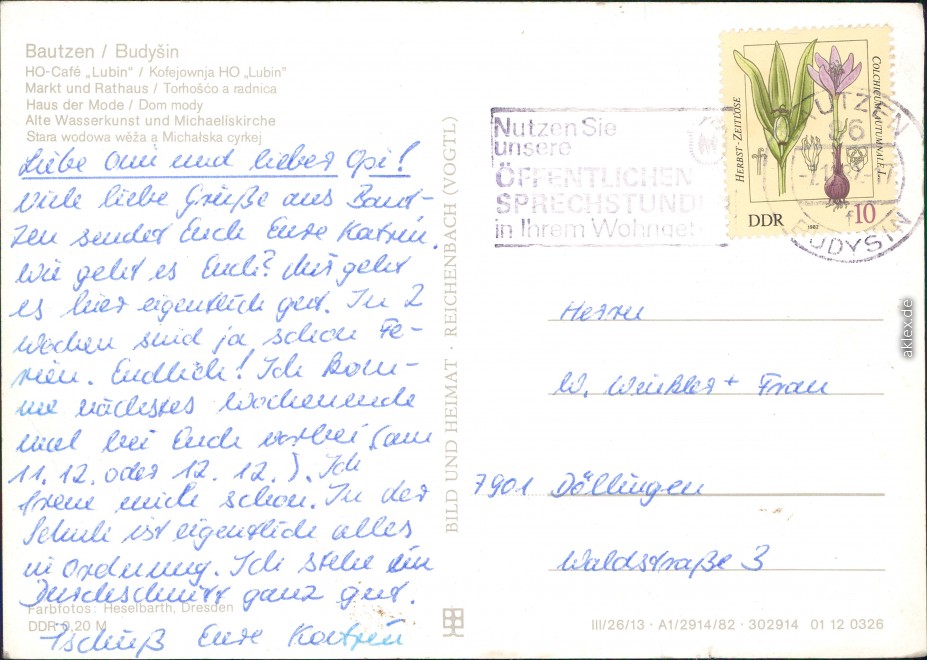 Bautzen / Budyšin
HO-Café „Lubin" / Kofejownja HO „Lubin"
Markt und Rathaus / Torhošćo a radnica
Haus der Mode / Dom mody
Alte Wasserkunst und Michaeliskirche
Stara wodowa wěža a Michałska cyrkej
Liebe Omi und lieber Opi!
Viele liebe Grüße aus Baut-
zen sendet Euch Eure Katrin.
Wie geht es Euch? Mir geht
es hier eigentlich gut. In 2
Wochen sind ja schon Fe-
rien. Endlich! Ich kom-
me nächstes Wochenende
mal bei Euch vorbei (am
11.12. oder 12.12.). Ich
freue mich schon. In der
Schule ist eigentlich alles
in Ordnung. Ich stehe im
Durchschnitt ganz gut.
Tschüß Eure Katrin
Farbfotos: Heselbarth, Dresden
DDR 0,20 M
BILD UND HEIMAT · REICHENBACH (VOGTL)
Nutzen Sie
unsere
ÖFFENTLICHEN
SPRECHSTUND
in Ihrem Wohnge
HERBST-ZEITLOSE
COLCHICUM AUTUMNALE L.
DDR
1982
10
BAUTZEN
86
BUDYŠIN
Herrn
W. Winkler + Frau
7901 Döllingen
Waldstraße 3
III/26/13 · A1/2914/82 · 302914 01 12 0326
aklex.de